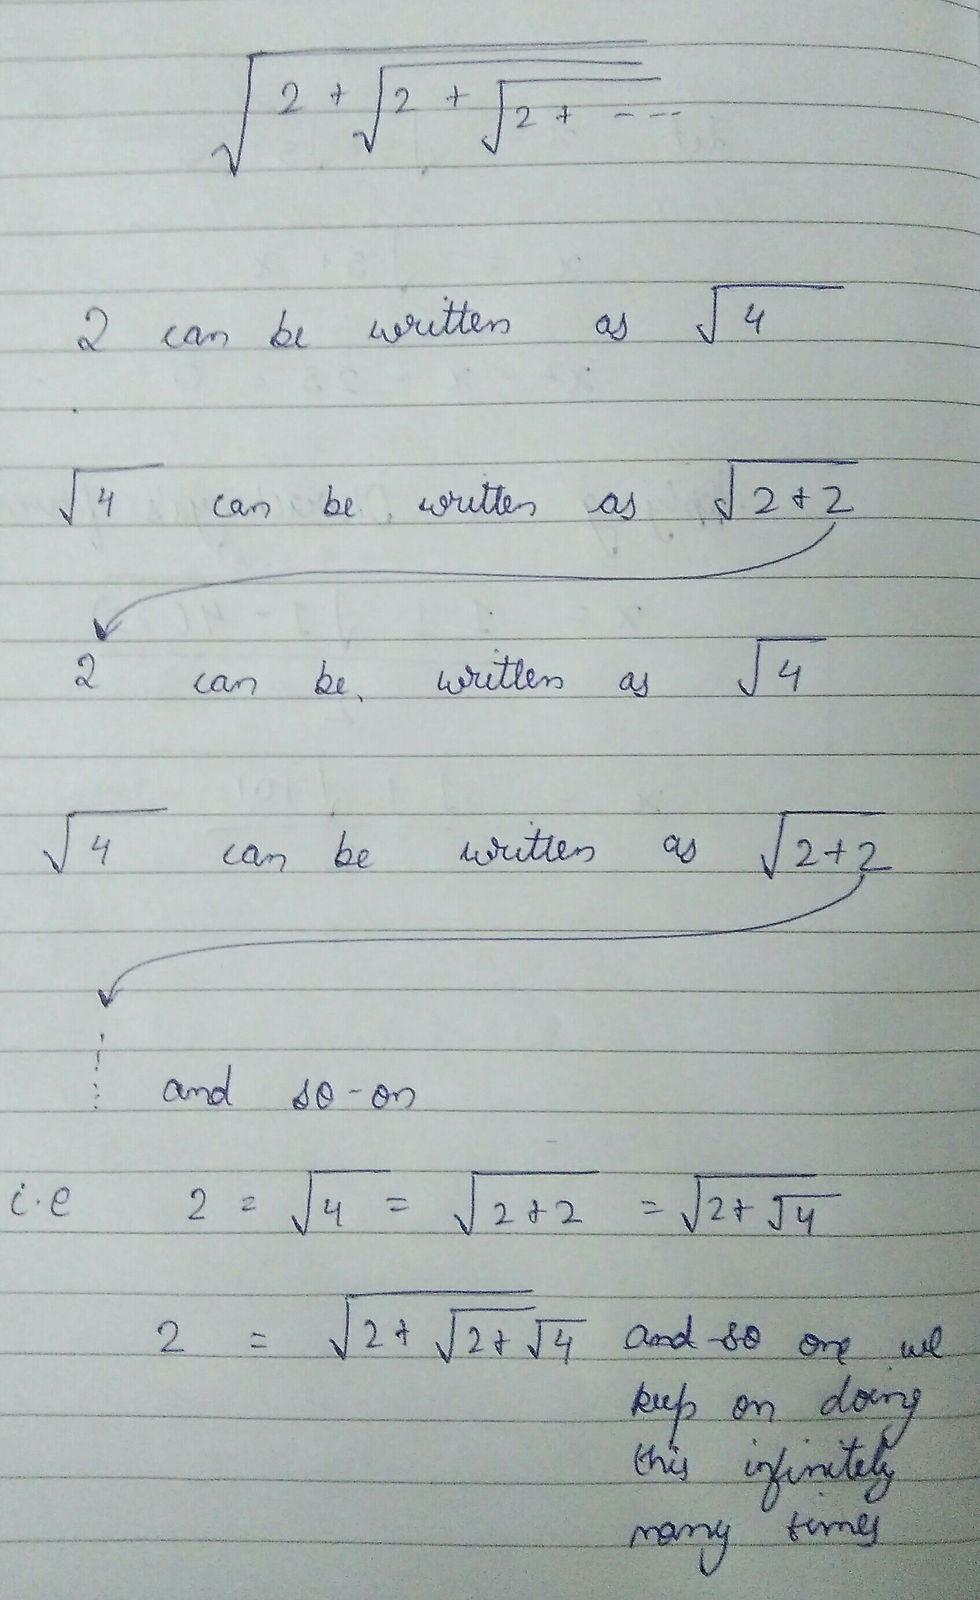 √(2 + √(2 + √(2 + ---
2 can be written as √4
√4 can be written as √(2+2)
2 can be written as √4
√4 can be written as √(2+2)
and so-on
i.e 2 = √4 = √(2+2) = √(2+√4)
2 = √(2+√(2+√4 and so one we
keep on doing
this infinitely
many times